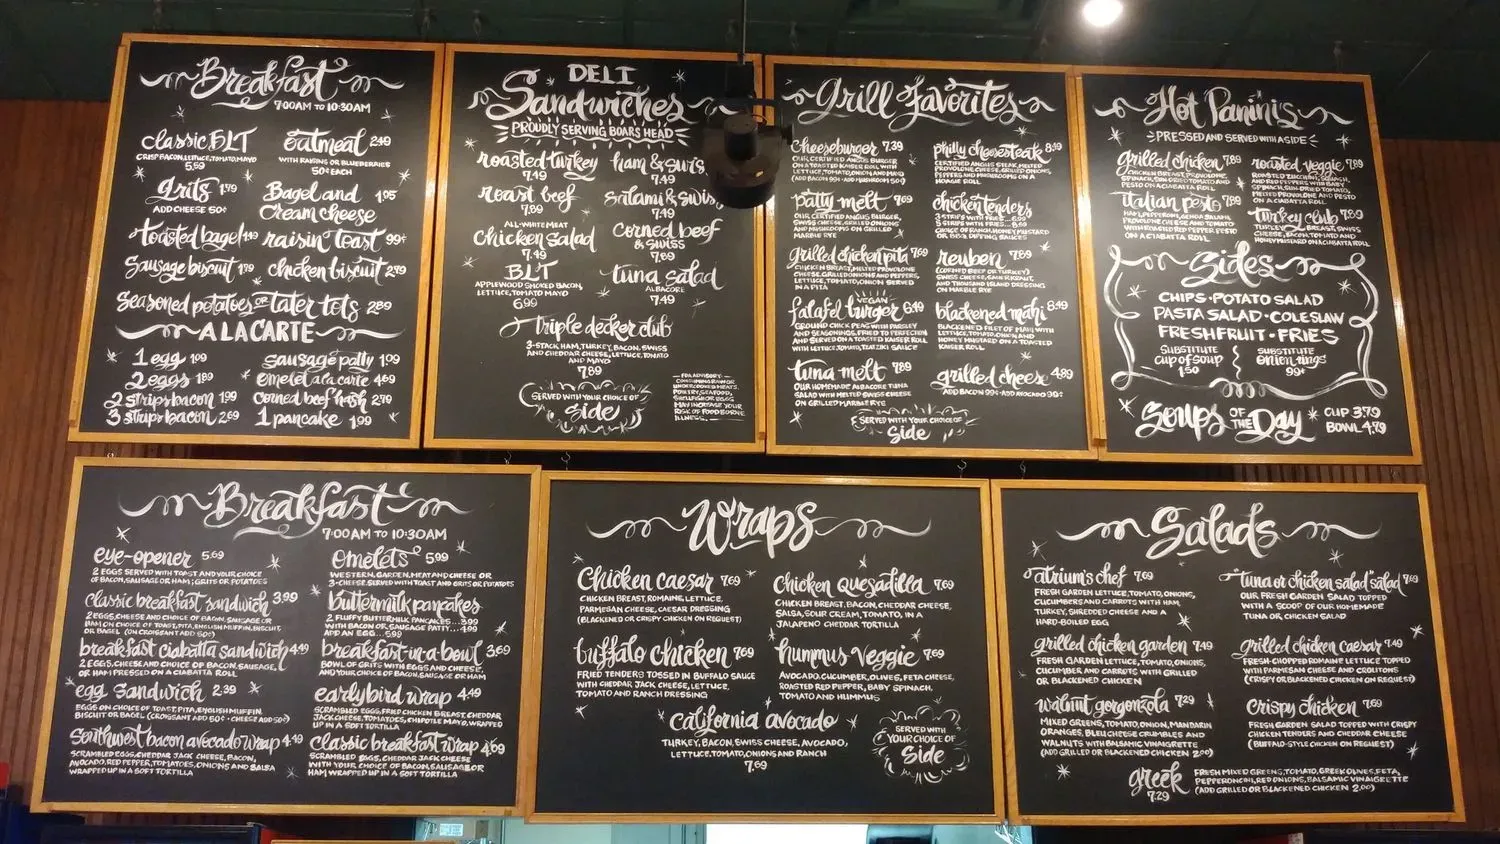 Breakfast
7:00AM TO 10:30AM
classic BLT
CRISP BACON, LETTUCE, TOMATO, MAYO
5.59
oatmeal 2.49
WITH RAISINS OR BLUEBERRIES
50¢ EACH
grits 1.79
ADD CHEESE 50¢
Bagel and 1.95
Cream cheese
toasted bagel 1.49
raisin toast 99¢
Sausage biscuit 1.99
chicken biscuit 2.79
Seasoned potatoes OR tater tots 2.89
A LA CARTE
1 egg 1.09
2 eggs 1.89
2 strips bacon 1.99
3 strips bacon 2.69
sausage patty 1.99
omelet a la carte 4.69
corned beef hash 2.79
1 pancake 1.99
DELI
Sandwiches
PROUDLY SERVING BOARS HEAD
roasted turkey
7.49
ham & swiss
7.49
roast beef
7.89
Salami & Swiss
7.49
ALL-WHITE MEAT
Chicken Salad
7.49
Corned beef
& SWISS
7.69
BLT
APPLEWOOD SMOKED BACON,
LETTUCE, TOMATO MAYO
6.99
tuna salad
ALBACORE
7.49
triple decker club
3-STACK HAM, TURKEY, BACON, SWISS
AND CHEDDAR CHEESE, LETTUCE, TOMATO
AND MAYO
7.89
SERVED WITH YOUR CHOICE OF
Side
FDA ADVISORY
CONSUMING RAW OR
UNDERCOOKED MEATS,
POULTRY, SEAFOOD,
SHELLFISH OR EGGS
MAY INCREASE YOUR
RISK OF FOOD BORNE
ILLNESS.
Grill Favorites
Cheeseburger 7.39
OUR CERTIFIED ANGUS BURGER
ON A TOASTED KAISER ROLL WITH
LETTUCE, TOMATO, ONION AND MAYO
(ADD BACON 99¢ · ADD MUSHROOM 50¢)
philly cheesesteak 8.49
CERTIFIED ANGUS STEAK, MELTED
PROVOLONE CHEESE, GRILLED ONIONS,
PEPPERS AND MUSHROOMS ON A
HOAGIE ROLL
patty melt 7.69
OUR CERTIFIED ANGUS BURGER,
SWISS CHEESE, GRILLED ONIONS
AND MUSHROOMS ON GRILLED
MARBLE RYE
chicken tenders
3 STRIPS WITH FRIES
5 STRIPS WITH FRIES
CHOICE OF RANCH, HONEY MUSTARD
OR BBQ DIPPING SAUCES
grilled chicken pita 7.69
CHICKEN BREAST, MELTED PROVOLONE
CHEESE, GRILLED ONIONS AND PEPPERS,
LETTUCE, TOMATO, ONION SERVED
IN A PITA
reuben 7.69
(CORNED BEEF OR TURKEY)
SWISS CHEESE, SAUERKRAUT,
AND THOUSAND ISLAND DRESSING
ON MARBLE RYE
VEGAN
falafel burger 6.49
GROUND CHICK PEAS WITH PARSLEY
AND SEASONINGS, FRIED TO PERFECTION
AND SERVED ON A TOASTED KAISER ROLL
WITH LETTUCE, TOMATO, TZATZIKI SAUCE
blackened mahi 8.49
BLACKENED FILET OF MAHI WITH
LETTUCE, TOMATO, ONION AND
HONEY MUSTARD ON A TOASTED
KAISER ROLL
tuna melt 7.89
OUR HOMEMADE ALBACORE TUNA
SALAD WITH MELTED SWISS CHEESE
ON GRILLED MARBLE RYE
grilled cheese 4.89
ADD BACON 99¢ · ADD AVOCADO 99¢
SERVED WITH YOUR CHOICE OF
Side
Hot Panini's
PRESSED AND SERVED WITH A SIDE
grilled chicken 7.89
CHICKEN BREAST, PROVOLONE,
SPINACH, SUN-DRIED TOMATO AND
PESTO ON A CIABATTA ROLL
roasted veggie 7.89
ROASTED ZUCCHINI, SQUASH,
AND RED PEPPERS WITH BABY
SPINACH, SUN-DRIED TOMATO,
MELTED PROVOLONE AND PESTO
ON A CIABATTA ROLL
italian pesto 7.89
HAM, PEPPERONI, GENOA SALAMI,
PROVOLONE CHEESE AND TOMATO
WITH ROASTED RED PEPPER PESTO
ON A CIABATTA ROLL
turkey club 7.89
TURKEY BREAST, SWISS
CHEESE, BACON, TOMATO AND
HONEY MUSTARD ON A CIABATTA ROLL
Sides
CHIPS · POTATO SALAD
PASTA SALAD · COLESLAW
FRESH FRUIT · FRIES
SUBSTITUTE
cup of soup
1.50
SUBSTITUTE
onion rings
99¢
Soups OF THE Day
CUP 3.79
BOWL 4.79
Breakfast
7:00AM TO 10:30AM
eye-opener 5.69
2 EGGS SERVED WITH TOAST AND YOUR CHOICE
OF BACON, SAUSAGE OR HAM; GRITS OR POTATOES
omelets 5.99
WESTERN, GARDEN, MEAT AND CHEESE OR
3-CHEESE, SERVED WITH TOAST AND GRITS OR POTATOES
classic breakfast sandwich 3.99
2 EGGS, CHEESE AND CHOICE OF BACON, SAUSAGE OR
HAM ON CHOICE OF TOAST, PITA, ENGLISH MUFFIN, BISCUIT
OR BAGEL (ON CROISSANT ADD 50¢)
buttermilk pancakes
2 FLUFFY BUTTERMILK PANCAKES...3.99
WITH BACON OR SAUSAGE PATTY...4.99
ADD AN EGG...5.99
breakfast ciabatta sandwich 4.49
2 EGGS, CHEESE AND CHOICE OF BACON, SAUSAGE,
OR HAM PRESSED ON A CIABATTA ROLL
breakfast-in-a-bowl 3.69
BOWL OF GRITS WITH EGGS AND CHEESE,
AND YOUR CHOICE OF BACON, SAUSAGE OR HAM
egg sandwich 2.39
EGGS ON CHOICE OF TOAST, PITA, ENGLISH MUFFIN,
BISCUIT OR BAGEL (CROISSANT ADD 50¢ · CHEESE ADD 50¢)
earlybird wrap 4.49
SCRAMBLED EGGS, FRIED CHICKEN BREAST, CHEDDAR
JACK CHEESE, TOMATOES, CHIPOTLE MAYO, WRAPPED
UP IN A SOFT TORTILLA
Southwest bacon avocado wrap 4.49
SCRAMBLED EGGS, CHEDDAR JACK CHEESE, BACON,
AVOCADO, RED PEPPER, TOMATOES, ONIONS AND SALSA
WRAPPED UP IN A SOFT TORTILLA
classic breakfast wrap 4.69
SCRAMBLED EGGS, CHEDDAR JACK CHEESE
WITH YOUR CHOICE OF BACON, SAUSAGE OR
HAM WRAPPED UP IN A SOFT TORTILLA
Wraps
Chicken caesar 7.69
CHICKEN BREAST, ROMAINE, LETTUCE,
PARMESAN CHEESE, CAESAR DRESSING
(BLACKENED OR CRISPY CHICKEN ON REQUEST)
Chicken Quesadilla 7.69
CHICKEN BREAST, BACON, CHEDDAR CHEESE,
SALSA, SOUR CREAM, TOMATO, IN A
JALAPENO CHEDDAR TORTILLA
buffalo chicken 7.69
FRIED TENDERS TOSSED IN BUFFALO SAUCE
WITH CHEDDAR JACK CHEESE, LETTUCE,
TOMATO AND RANCH DRESSING
hummus veggie 7.69
AVOCADO, CUCUMBER, OLIVES, FETA CHEESE,
ROASTED RED PEPPER, BABY SPINACH,
TOMATO AND HUMMUS
California avocado
TURKEY, BACON, SWISS CHEESE, AVOCADO,
LETTUCE, TOMATO, ONIONS AND RANCH
7.69
SERVED WITH
YOUR CHOICE OF
Side
Salads
atrium's chef 7.69
FRESH GARDEN LETTUCE, TOMATO, ONIONS,
CUCUMBERS AND CARROTS WITH HAM,
TURKEY, SHREDDED CHEESE AND A
HARD-BOILED EGG
"tuna or chicken salad" salad 7.69
OUR FRESH GARDEN SALAD TOPPED
WITH A SCOOP OF OUR HOMEMADE
TUNA OR CHICKEN SALAD
grilled chicken garden 7.49
FRESH GARDEN LETTUCE, TOMATO, ONIONS,
CUCUMBER AND CARROTS WITH GRILLED
OR BLACKENED CHICKEN
grilled chicken caesar 7.49
FRESH-CHOPPED ROMAINE LETTUCE TOPPED
WITH PARMESAN CHEESE AND CROUTONS
(CRISPY OR BLACKENED CHICKEN ON REQUEST)
walnut gorgonzola 7.29
MIXED GREENS, TOMATO, ONION, MANDARIN
ORANGES, BLEU CHEESE CRUMBLES AND
WALNUTS WITH BALSAMIC VINAIGRETTE
(ADD GRILLED OR BLACKENED CHICKEN 2.00)
Crispy chicken 7.69
FRESH GARDEN SALAD TOPPED WITH CRISPY
CHICKEN TENDERS AND CHEDDAR CHEESE
(BUFFALO-STYLE CHICKEN ON REQUEST)
greek
7.29
FRESH MIXED GREENS, TOMATO, GREEK OLIVES, FETA,
PEPPERONCINI, RED ONIONS, BALSAMIC VINAIGRETTE
(ADD GRILLED OR BLACKENED CHICKEN 2.00)